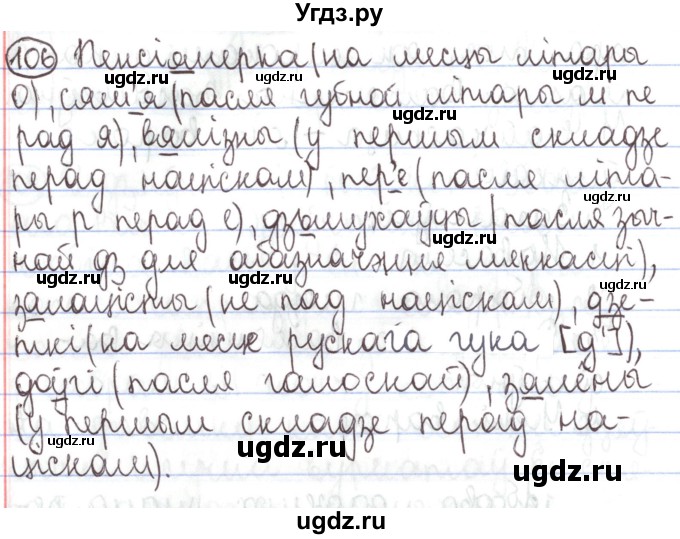 Угдз.ру
106 Пенсіянерка (на месцы літары
о), сям'я (пасля губной літары м пе
рад я), вялізны, (у першым складзе
перад націскам), пер'е (пасля літа-
ры р перад е), дзьмухаўцы (пасля зыч-
най дз для абазначэння мяккасці),
залацісты (не пад націскам), дзе-
ткі (на месце рускага гука [д']),
доўгі (пасля галоснай), зялёны
(у першым складзе перад на-
ціскам).
ugdz.ru ugdz.ru
ugdz.ru ugdz.ru ugdz.ru
ugdz.ru ugdz.ru
ugdz.ru ugdz.ru ugdz.ru
ugdz.ru ugdz.ru
ugdz.ru ugdz.ru ugdz.ru
ugdz.ru
ugdz.ru